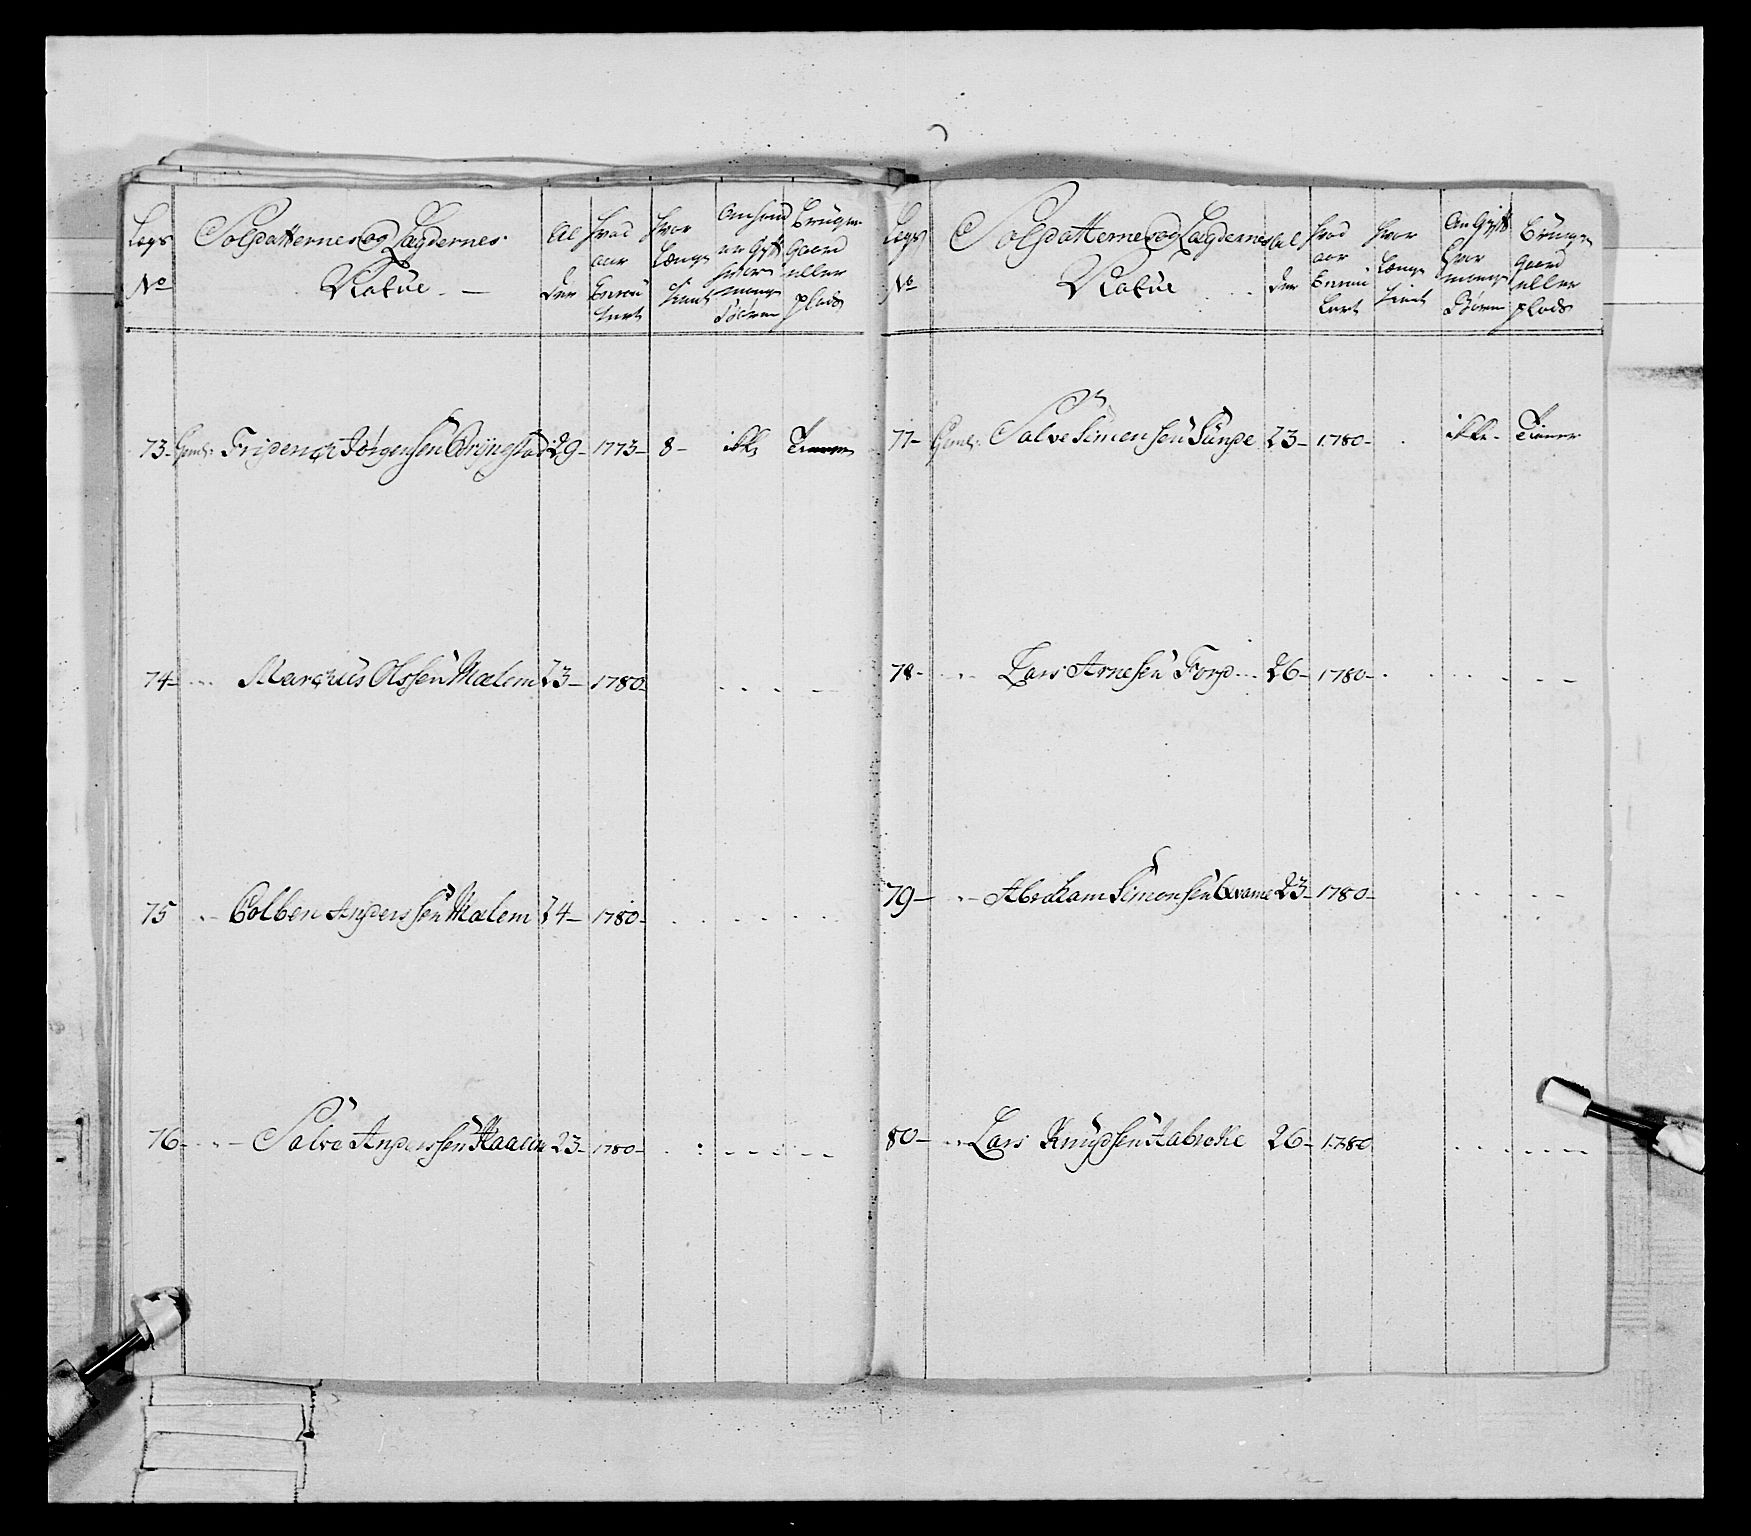 Legs
No
Soldatternes og Lægdernes
Nafne
Al
der
hvad
aar
Enrou
lert
hvor
Længe
tient
Om hand
er Gift
hvor
mange
Børn
Bruger
Gaard
eller
plads
73 Gml: Friderich Jørgensen Bringstad 29 - 1773 - 8 - ikke Tiener
74 - Marcus Olssen Mælem 23 - 1780 -
75 Colben Anderssen Mælem 24 - 1780 -
76 - Salve Anderssen Haaeim 23 - 1780 -
Legs
No
Soldatternes og Lægdernes
Nafne
Al
der
hvad
aar
Enrou
lert
hvor
Længe
tient
Om Gift
hvor
mange
Børn
Bruger
Gaard
eller
plads
77 - Gml: Salve Simensen Sunde 23 - 1780 - ikke - Tiener
78 - Lars Arnesen Ford 26 - 1780 -
79 - Abraham Simonsen Qvame 23 - 1780 -
80 - Lars Knudsen Aabrekke 26 - 1780